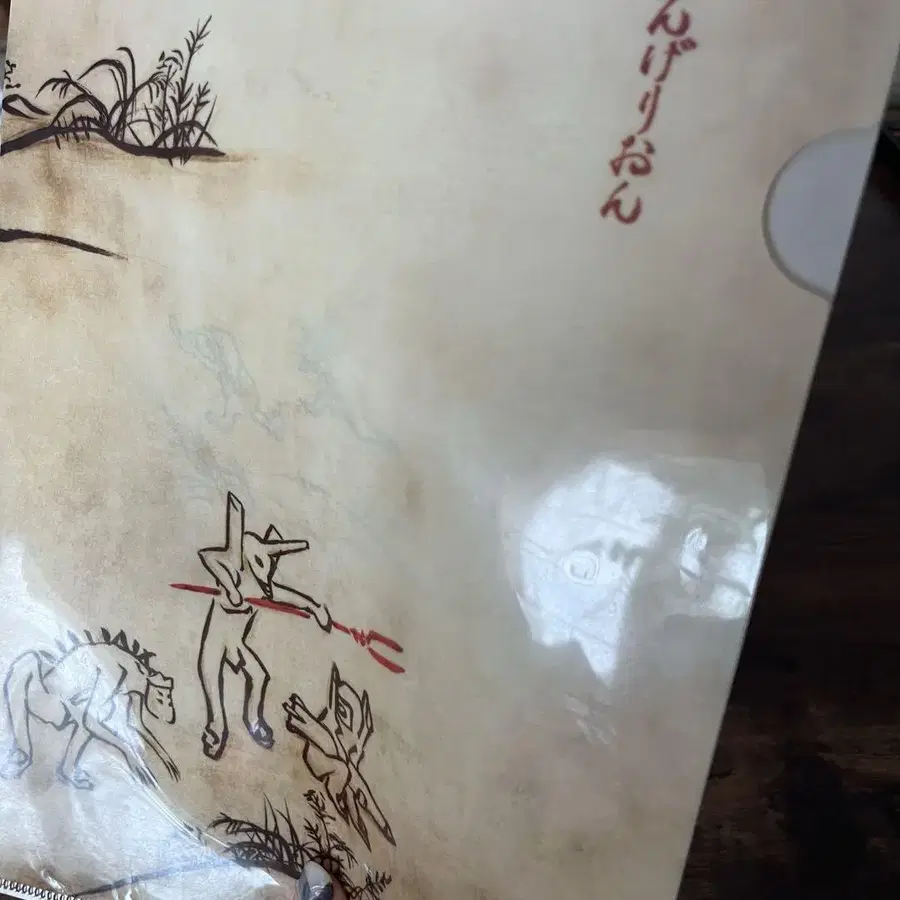 んげりおん